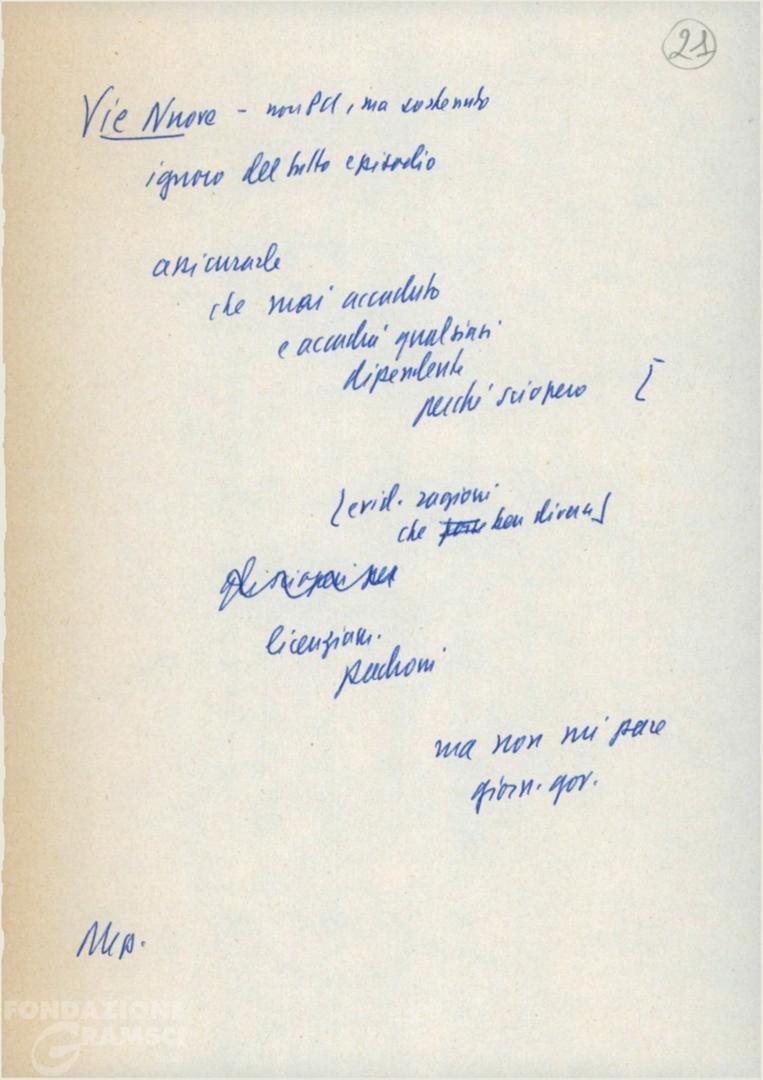 21
Vie Nuove - non PCI, ma sostenuto
ignoro del tutto episodio
assicurarle
che mai accaduto
e accadrà qualsiasi
dipendente
perché sciopero [
[evid. ragioni
che ben diverse]
gli scioperi per
licenziam.
padroni
ma non mi pare
giorn. gov.
FONDAZIONE
GRAMSCI